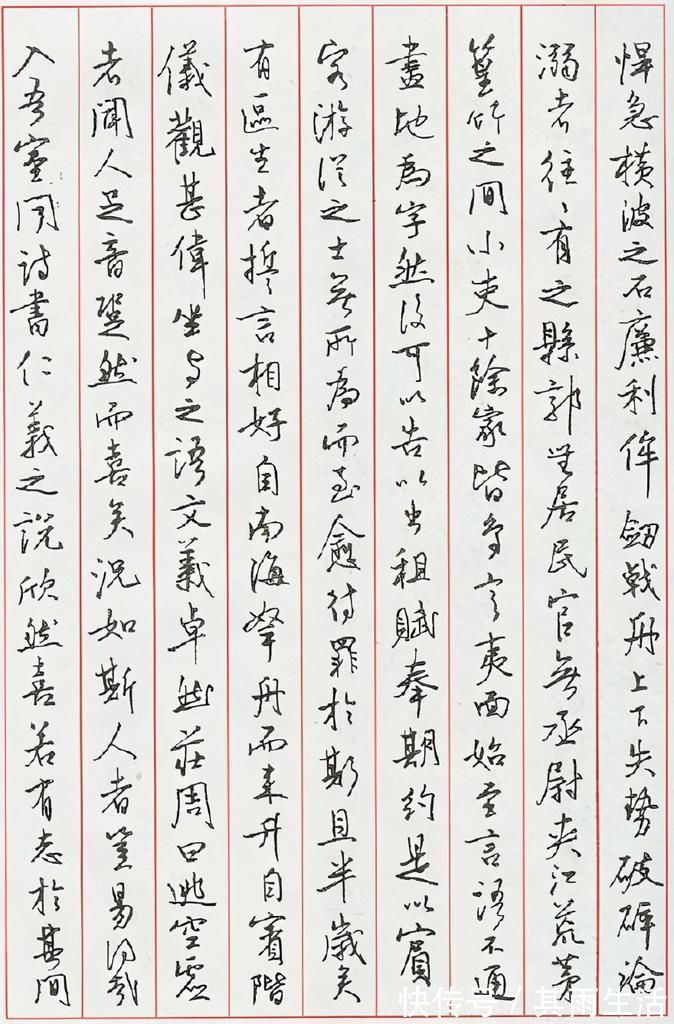 悍急橫波之石廉利侔劒戟舟上下失勢破碎淪
溺者往〻有之縣郭無居民官無丞尉夾江荒茅
篁竹之間小吏十餘家皆鳥言夷面始至言語不通
畫地為字然後可以告以出租賦奉期約是以賓
客游從之士無所為而至愈待罪於斯且半歲矣
有區生者誓言相好自南海挐舟而來升自賓階
儀觀甚偉坐與之語文義卓然莊周曰逃空虛
者聞人足音跫然而喜矣況如斯人者豈易得哉
入吾室聞詩書仁義之說欣然喜若有志於其間
快传号 / 其雨生活